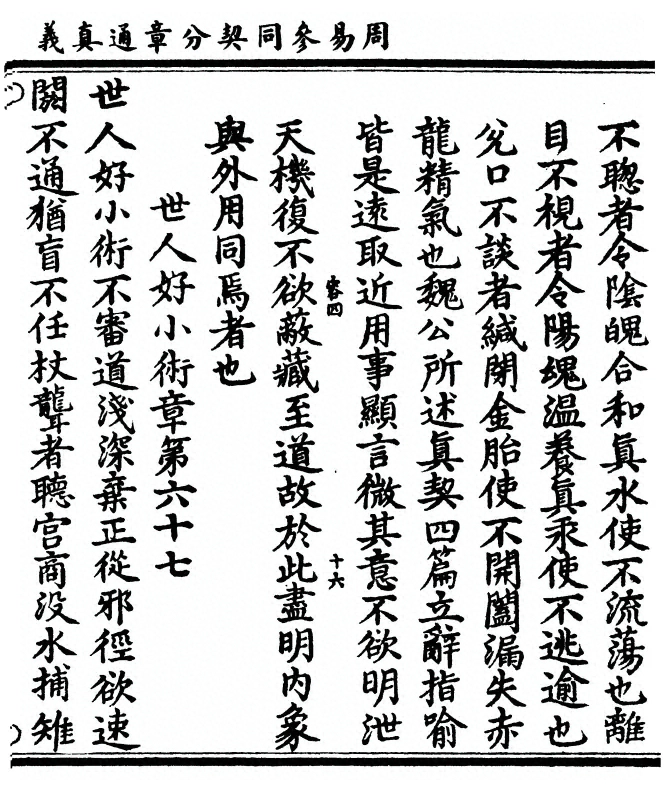 周易參同契分章通真義
不聰者令陰魄合和真水使不流蕩也離
目不視者令陽魂溫養真汞使不逃逾也
兊口不談者緘閉金胎使不開闔漏失赤
龍精氣也魏公所述真契四篇立辭指喻
皆是遠取近用事顯言微其意不欲明泄
容四
十六
天機復不欲蔽藏至道故於此盡明內象
與外用同焉者也
世人好小術章第六十七
世人好小術不審道淺深棄正從邪徑欲速
闕不通猶盲不任杖聾者聽宮商没水捕雉